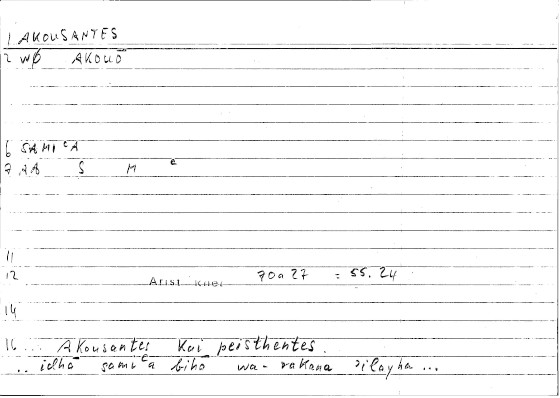 1 AKOUSANTES
2 WØ AKOUŌ
6 SAMIᶜA
7 AA S M ᶜ
11
12 Arist Rhet 70a27 = 55.24
14
16 ... Akousantes kai peisthentes.
.. idhā samiᶜa bihā wa-rakana ʾilayhā ...